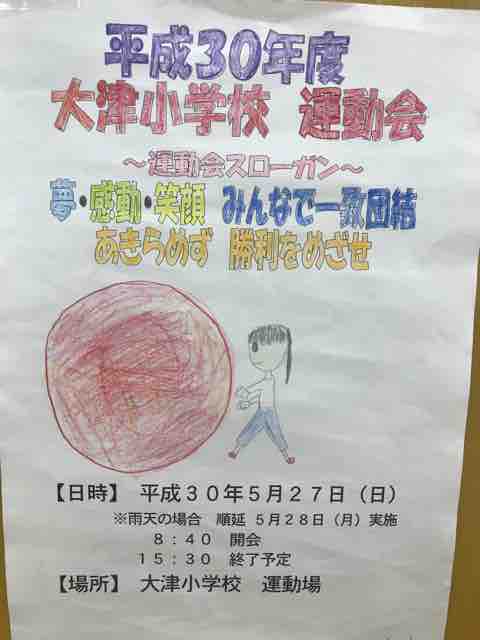 平成30年度
大津小学校 運動会
～運動会スローガン～
夢・感動・笑顔 みんなで一致団結
あきらめず 勝利をめざせ
【日時】 平成３０年５月２７日（日）
※雨天の場合 順延 ５月２８日（月）実施
８：４０ 開会
１５：３０ 終了予定
【場所】 大津小学校 運動場